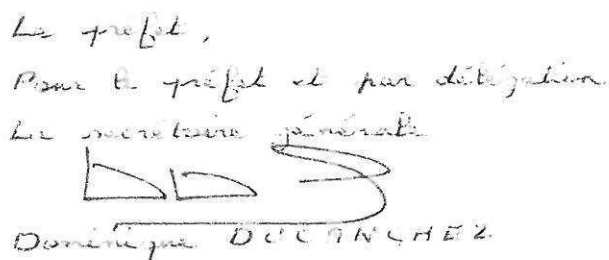 Le préfet,
Pour le préfet et par délégation
La secrétaire générale
Dominique DUCANCHEZ